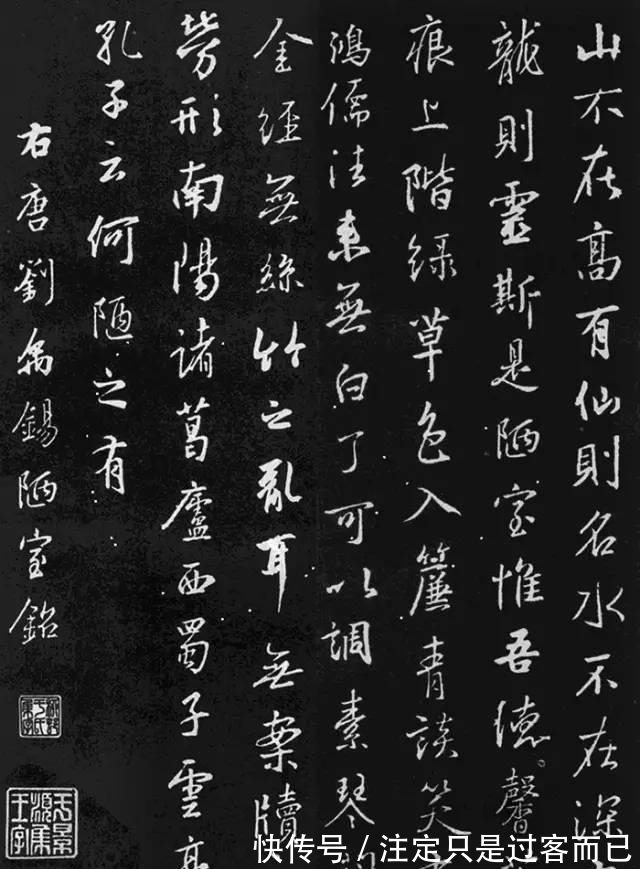 山不在高有仙則名水不在深
龍則靈斯是陋室惟吾德馨
痕上階綠草色入簾青談笑
鴻儒往來無白丁可以調素琴
金經無絲竹之亂耳無案牘
勞形南陽諸葛廬西蜀子雲亭
孔子云何陋之有
右唐劉禹錫陋室銘
快传号／注定只是过客而已